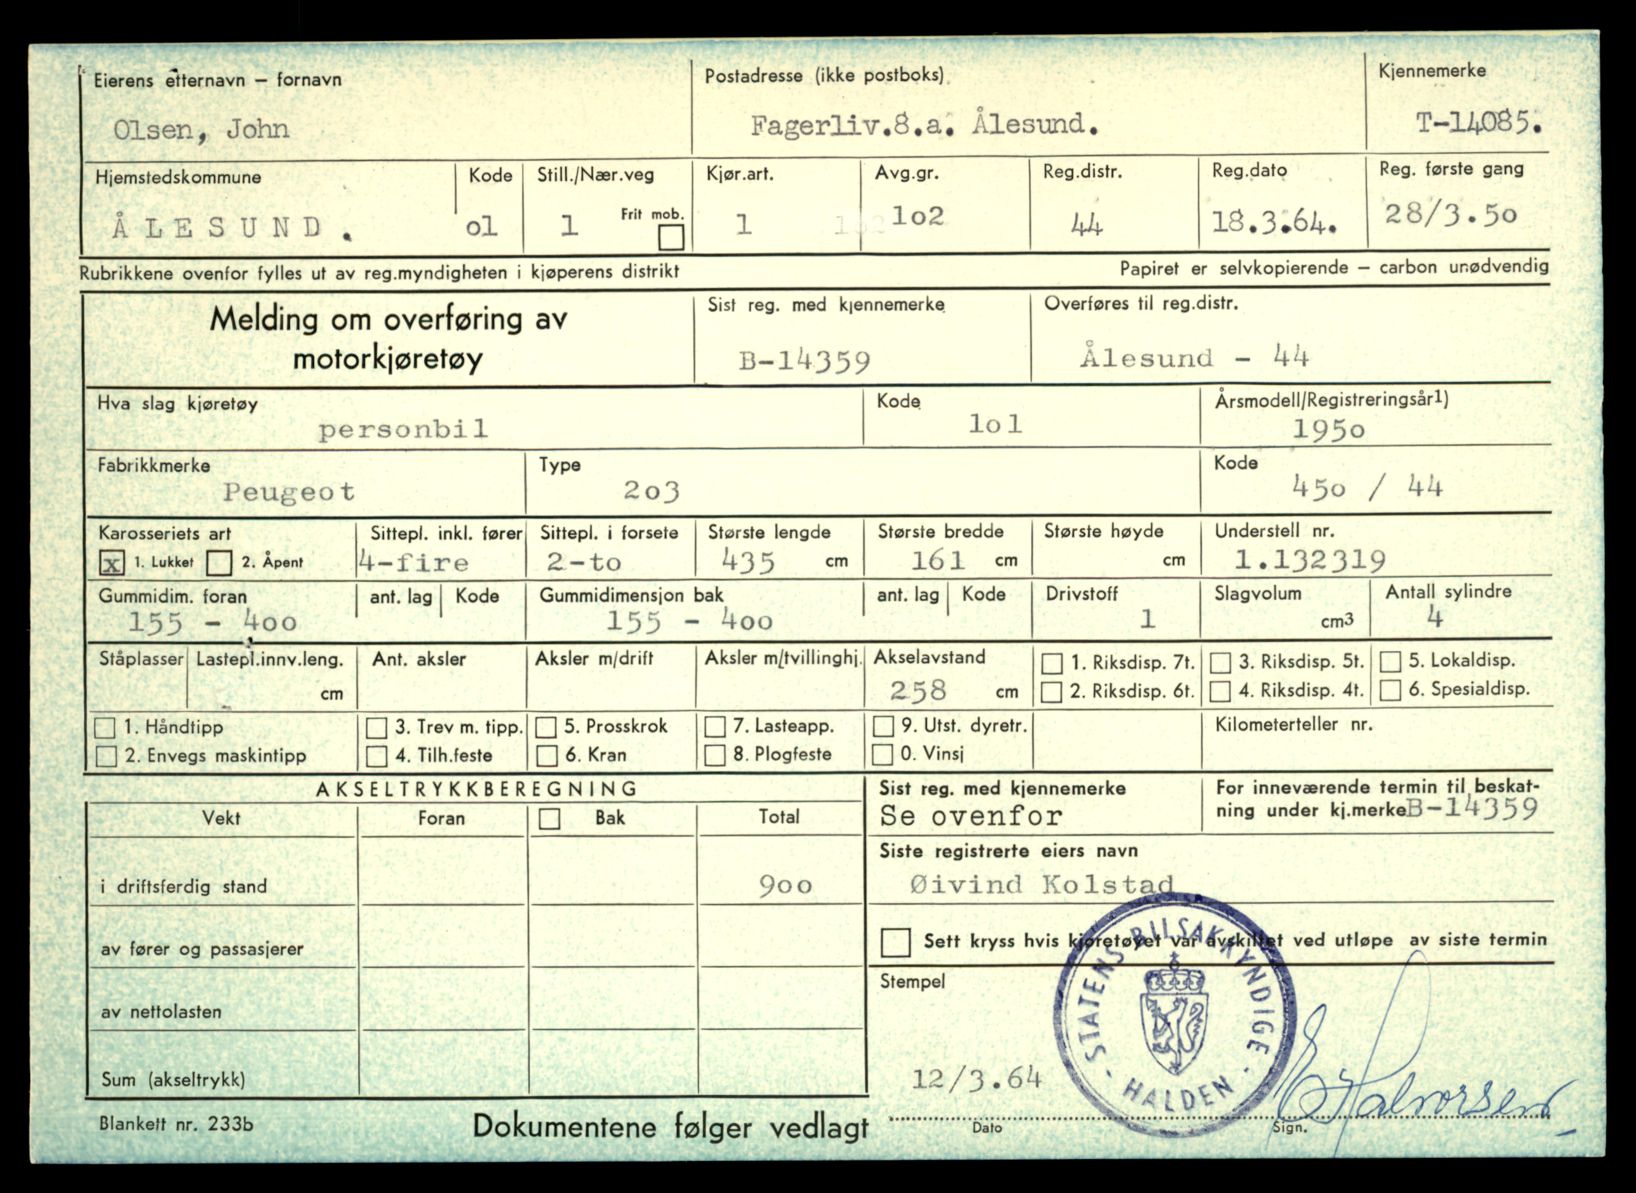 Eierens etternavn – fornavn
Olsen, John
Postadresse (ikke postboks)
Fagerliv.8.a. Ålesund.
Kjennemerke
T-14085.
Hjemstedskommune
ÅLESUND.
Kode
o1
Still./Nær.veg
1
Frit mob.
Kjør.art.
1
Avg.gr.
1o2
Reg.distr.
44
Reg.dato
18.3.64.
Reg. første gang
28/3.5o
Rubrikkene ovenfor fylles ut av reg.myndigheten i kjøperens distrikt
Papiret er selvkopierende – carbon unødvendig
Melding om overføring av
motorkjøretøy
Sist reg. med kjennemerke
B-14359
Overføres til reg.distr.
Ålesund - 44
Hva slag kjøretøy
personbil
Kode
1o1
Årsmodell/Registreringsår1)
195o
Fabrikkmerke
Peugeot
Type
2o3
Kode
45o / 44
Karosseriets art
x 1. Lukket 2. Åpent
Sittepl. inkl. fører
4-fire
Sittepl. i forsete
2-to
Største lengde
435 cm
Største bredde
161 cm
Største høyde
cm
Understell nr.
1.132319
Gummidim. foran
155 - 4oo
ant. lag
Kode
Gummidimensjon bak
155 - 4oo
ant. lag
Kode
Drivstoff
1
Slagvolum
cm3
Antall sylindre
4
Ståplasser
Lastepl.innv.leng.
cm
Ant. aksler
Aksler m/drift
Aksler m/tvillinghj.
Akselavstand
258 cm
1. Riksdisp. 7t.
2. Riksdisp. 6t.
3. Riksdisp. 5t.
4. Riksdisp. 4t.
5. Lokaldisp.
6. Spesialdisp.
1. Håndtipp
2. Envegs maskintipp
3. Trev m. tipp.
4. Tilh.feste
5. Prosskrok
6. Kran
7. Lasteapp.
8. Plogfeste
9. Utst. dyretr.
0. Vinsj
Kilometerteller nr.
AKSELTRYKKBEREGNING
Vekt
Foran
Bak
Total
i driftsferdig stand
9oo
av fører og passasjerer
av nettolasten
Sum (akseltrykk)
Sist reg. med kjennemerke
Se ovenfor
For inneværende termin til beskat-
ning under kj.merke B-14359
Siste registrerte eiers navn
Øivind Kolstad
Sett kryss hvis kjøretøyet var avskiltet ved utløpe av siste termin
Stempel
STATENS BILSAKKYNDIGE
- HALDEN -
12/3.64
E Halvorsen
Dato
Sign.
Blankett nr. 233b
Dokumentene følger vedlagt